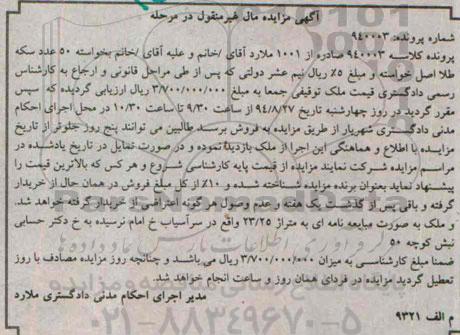 آگهی مزایده مال غیرمنقول در مرحله
شماره پرونده: ۹۴۰۰۰۳
پرونده کلاسه ۹۴۰۰۰۳ صادره از ۱۰۰۱ ملارد آقای /خانم و علیه آقای /خانم بخواسته ۵۰ عدد سکه
طلا اصل خواسته و مبلغ ۵٪ ریال نیم عشر دولتی که پس از طی مراحل قانونی و ارجاع به کارشناس
رسمی دادگستری قیمت ملک توقیفی جمعا به مبلغ ۳/۷۰۰/۰۰۰/۰۰۰ ریال ارزیابی گردیده که سپس
مقرر گردید در روز چهارشنبه تاریخ ۹۴/۸/۲۷ از ساعت ۹/۳۰ تا ساعت ۱۰/۳۰ در محل اجرای احکام
مدنی دادگستری شهریار از طریق مزایده به فروش برسد طالبین می توانند پنج روز جلوتر از تاریخ
مزایده با اطلاع و هماهنگی این اجرا از ملک بازدید نموده و در صورت تمایل در تاریخ یادشده در
مراسم مزایده شرکت نمایند مزایده از قیمت پایه کارشناسی شروع و هر کس که بالاترین قیمت را
پیشنهاد نماید بعنوان برنده مزایده شناخته شده و ۱۰٪ از کل مبلغ فروش در همان حال از خریدار
گرفته و باقی پس از گذشت یک هفته و عدم وصول هر گونه اعتراضی از خریدار گرفته خواهد شد.
و ملک به صورت مبایعه نامه ای به متراژ ۲۳/۲۵ واقع در سرآسیاب خ امام نرسیده به خ دکتر حسابی
نبش کوچه ۵۰
ضمنا مبلغ کارشناسی به میزان ۳/۷۰۰/۰۰۰/۰۰۰ ریال می باشد و چنانچه روز مزایده مصادف با روز
تعطیل گردید مزایده در فردای همان روز و ساعت انجام خواهد شد.
مدیر اجرای احکام مدنی دادگستری ملارد
م الف ۹۳۲۱
۰۲۱-۸۸۳۴۹۶۷۰-۵